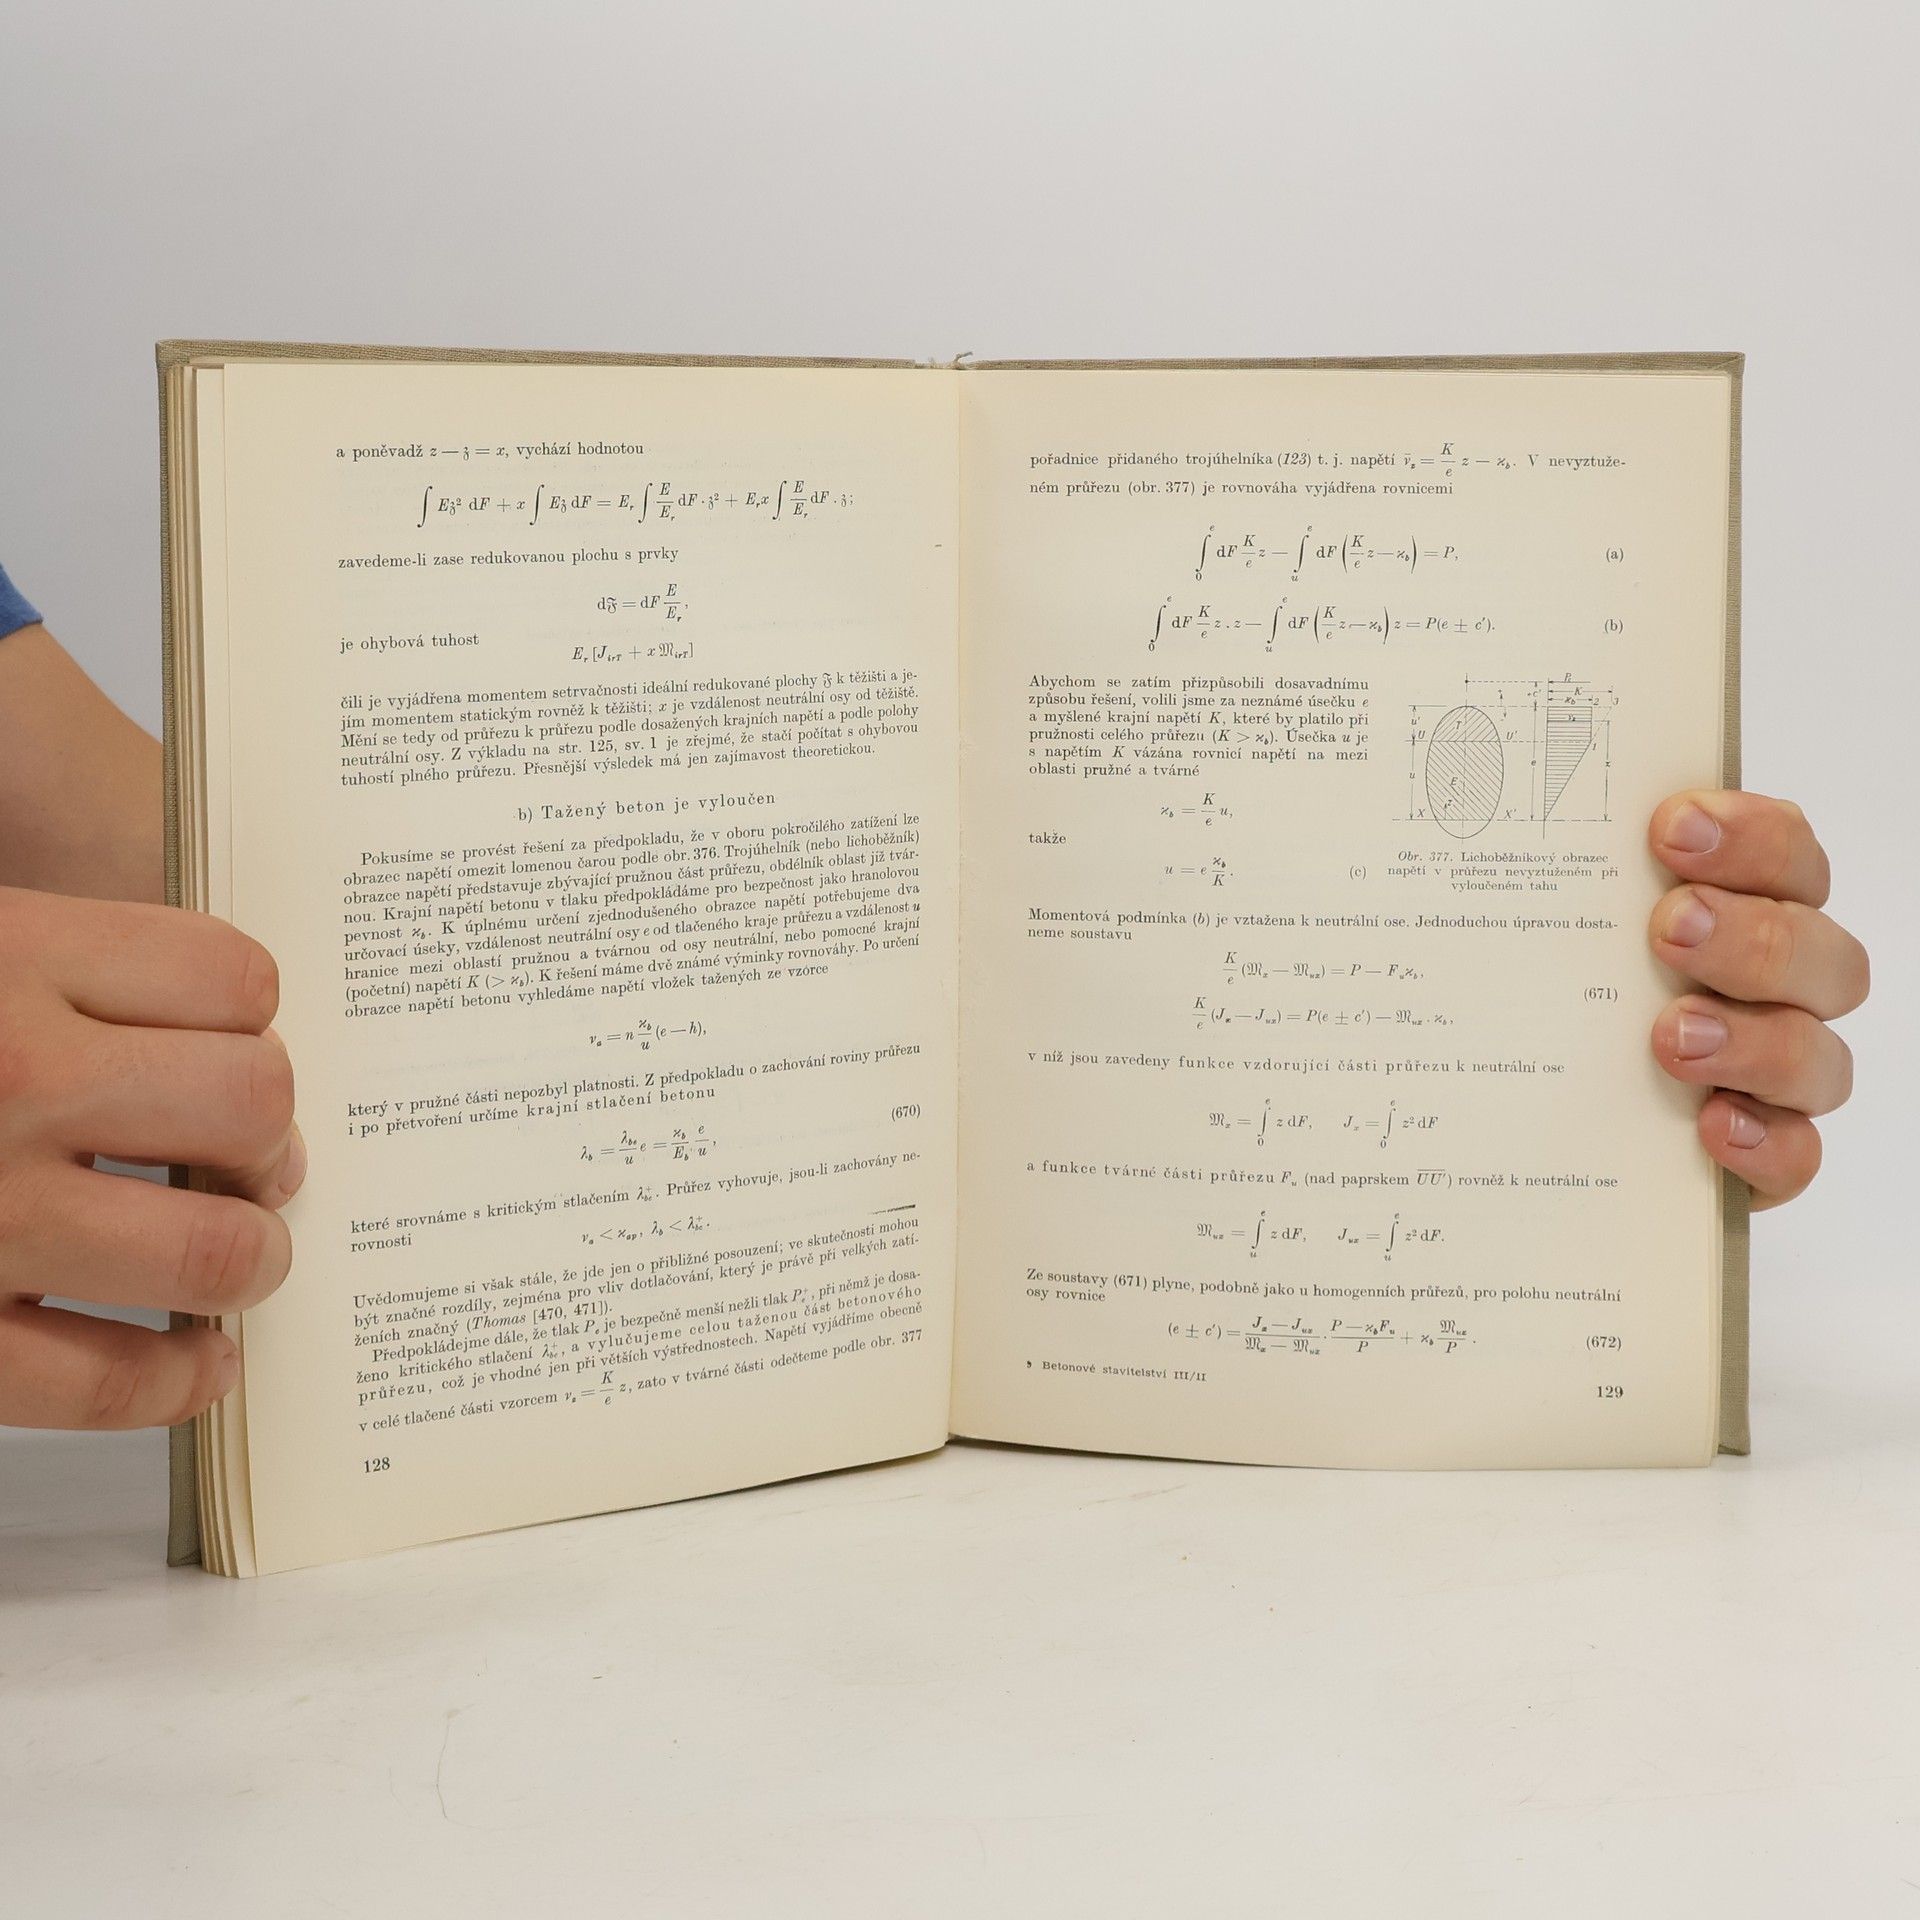 a poněvadž z — 𝔷 = x, vychází hodnotou
∫ E𝔷² dF + x ∫ E𝔷 dF = E_r ∫ E/E_r dF · 𝔷² + E_r x ∫ E/E_r dF . 𝔷;
zavedeme-li zase redukovanou plochu s prvky
d𝔉 = dF E/E_r,
je ohybová tuhost
E_r [J_irT + x 𝔐_irT]
čili je vyjádřena momentem setrvačnosti ideální redukované plochy 𝔉 k těžišti a je-
jím momentem statickým rovněž k těžišti; x je vzdálenost neutrální osy od těžiště.
Mění se tedy od průřezu k průřezu podle dosažených krajních napětí a podle polohy
neutrální osy. Z výkladu na str. 125, sv. 1 je zřejmé, že stačí počítat s ohybovou
tuhostí plného průřezu. Přesnější výsledek má jen zajímavost theoretickou.
b) Tažený beton je vyloučen
Pokusíme se provést řešení za předpokladu, že v oboru pokročilého zatížení lze
obrazec napětí omezit lomenou čarou podle obr. 376. Trojúhelník (nebo lichoběžník)
obrazce napětí představuje zbývající pružnou část průřezu, obdélník oblast již tvár-
nou. Krajní napětí betonu v tlaku předpokládáme pro bezpečnost jako hranolovou
pevnost ϰ_b. K úplnému určení zjednodušeného obrazce napětí potřebujeme dva
určovací úseky, vzdálenost neutrální osy e od tlačeného kraje průřezu a vzdálenost u
hranice mezi oblastí pružnou a tvárnou od osy neutrální, nebo pomocné krajní
(početní) napětí K (> ϰ_b). K řešení máme dvě známé výminky rovnováhy. Po určení
obrazce napětí betonu vyhledáme napětí vložek tažených ze vzorce
ν_a = n ϰ_b/u (e — h),
který v pružné části nepozbyl platnosti. Z předpokladu o zachování roviny průřezu
i po přetvoření určíme krajní stlačení betonu
λ_b = λ_be/u e = ϰ_b/E_b e/u, (670)
které srovnáme s kritickým stlačením λ_bc⁺. Průřez vyhovuje, jsou-li zachovány ne-
rovnosti
ν_a < ϰ_ap, λ_b < λ_bc⁺.
Uvědomujeme si však stále, že jde jen o přibližné posouzení; ve skutečnosti mohou
být značné rozdíly, zejména pro vliv dotlačování, který je právě při velkých zatí-
ženích značný (Thomas [470, 471]).
Předpokládejme dále, že tlak P_e je bezpečně menší nežli tlak P_e⁺, při němž je dosa-
ženo kritického stlačení λ_bc⁺, a vylučujeme celou taženou část betonového
průřezu, což je vhodné jen při větších výstřednostech. Napětí vyjádříme obecně
v celé tlačené části vzorcem ν_z = K/e z, zato v tvárné části odečteme podle obr. 377
128
pořadnice přidaného trojúhelníka (123) t. j. napětí ν̄_z = K/e z — ϰ_b. V nevyztuže-
ném průřezu (obr. 377) je rovnováha vyjádřena rovnicemi
∫₀^e dF K/e z — ∫_u^e dF (K/e z — ϰ_b) = P, (a)
∫₀^e dF K/e z . z — ∫_u^e dF (K/e z — ϰ_b) z = P(e ± c′). (b)
Abychom se zatím přizpůsobili dosavadnímu
způsobu řešení, volili jsme za neznámé úsečku e
a myšlené krajní napětí K, které by platilo při
pružnosti celého průřezu (K > ϰ_b). Úsečka u je
s napětím K vázána rovnicí napětí na mezi
oblasti pružné a tvárné
ϰ_b = K/e u,
takže
u = e ϰ_b/K. (c)
P K ϰ_b 2 3 u′ T U U′ 1 u e E z X X′
Obr. 377. Lichoběžníkový obrazec
napětí v průřezu nevyztuženém při
vyloučeném tahu
Momentová podmínka (b) je vztažena k neutrální ose. Jednoduchou úpravou dosta-
neme soustavu
K/e (𝔐_x — 𝔐_ux) = P — F_u ϰ_b,
(671)
K/e (J_x — J_ux) = P(e ± c′) — 𝔐_ux . ϰ_b,
v níž jsou zavedeny funkce vzdorující části průřezu k neutrální ose
𝔐_x = ∫₀^e z dF, J_x = ∫₀^e z² dF
a funkce tvárné části průřezu F_u (nad paprskem UU′) rovněž k neutrální ose
𝔐_ux = ∫_u^e z dF, J_ux = ∫_u^e z² dF.
Ze soustavy (671) plyne, podobně jako u homogenních průřezů, pro polohu neutrální
osy rovnice
(e ± c′) = (J_x — J_ux)/(𝔐_x — 𝔐_ux) · (P — ϰ_b F_u)/P + ϰ_b 𝔐_ux/P . (672)
9 Betonové stavitelství III/II
129